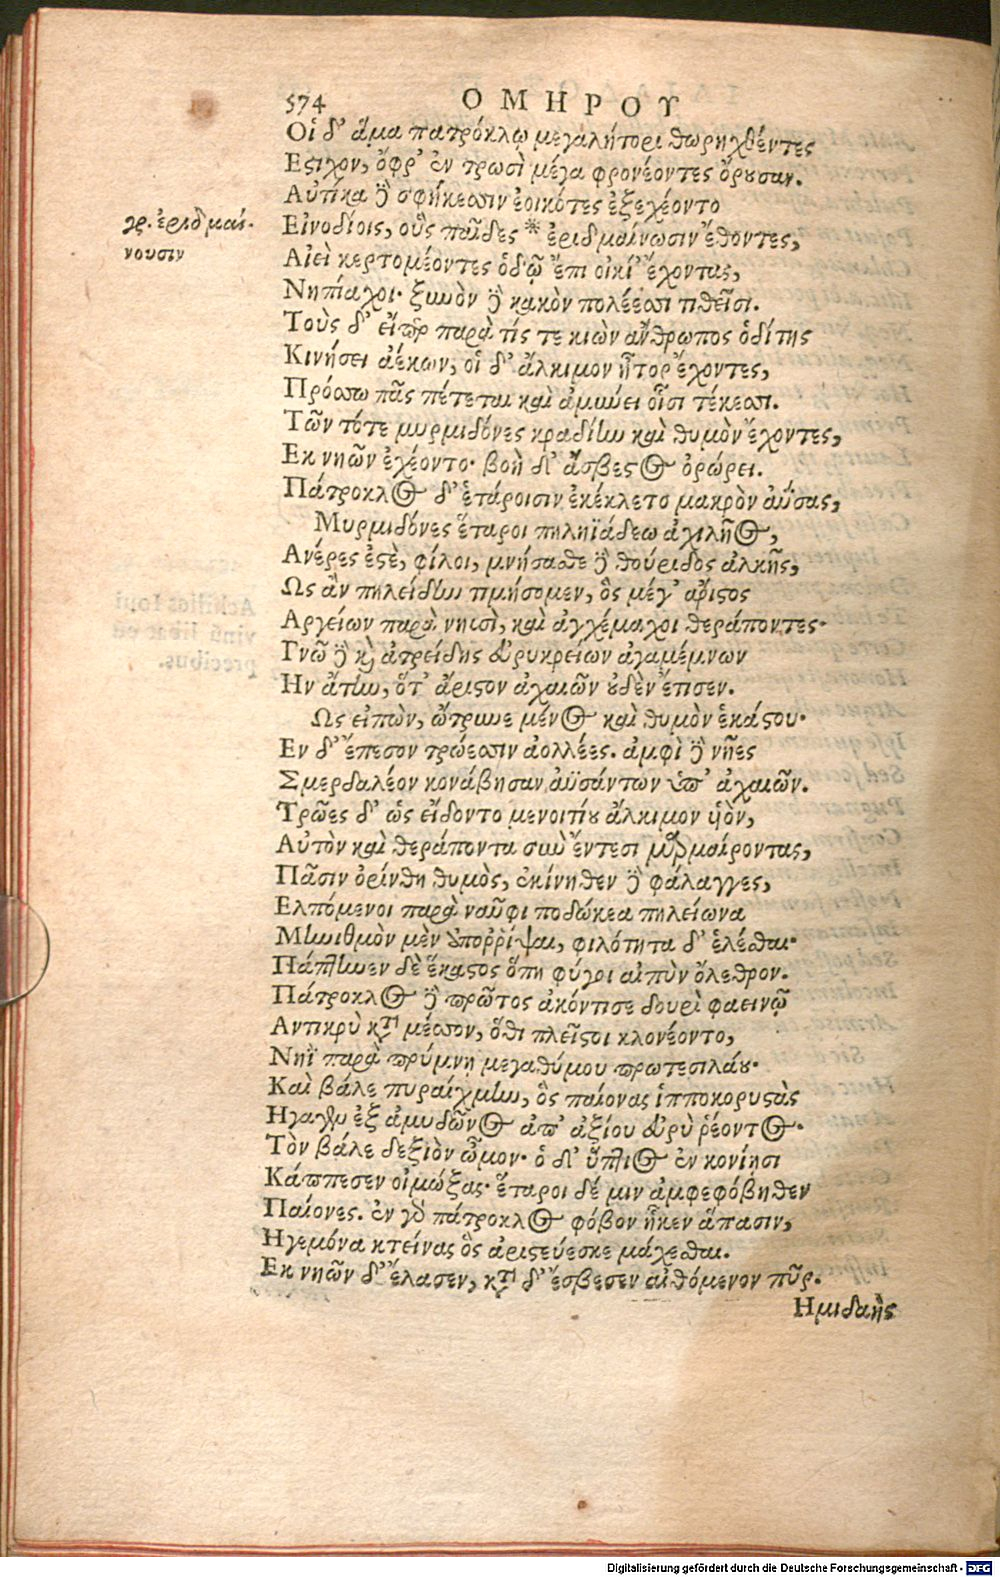 574 ΟΜΗΡΟΥ
Οἱ δ' ἅμα πατρόκλῳ μεγαλήτορι θωρηχθέντες
Εστιχον, ὄφρ' ἐν τρωσὶ μέγα φρονέοντες ὄρουσαν.
Αὐτίκα δὲ σφήκεσσιν ἐοικότες ἐξεχέοντο
γρ. ἐριδμαί-
νουσιν
Εἰνοδίοις, οὓς παῖδες * ἐριδμαίνωσιν ἔθοντες,
Αἰεὶ κερτομέοντες ὁδῷ ἔπι οἰκί' ἔχοντας,
Νηπίαχοι· ξυνὸν δὲ κακὸν πολέεσσι τιθεῖσι.
Τοὺς δ' εἴπερ παρὰ τίς τε κιὼν ἄνθρωπος ὁδίτης
Κινήσει ἀέκων, οἱ δ' ἄλκιμον ἦτορ ἔχοντες,
Πρόσσω πᾶς πέτεται καὶ ἀμύνει οἷσι τέκεσσι.
Τῶν τότε μυρμιδόνες κραδίην καὶ θυμὸν ἔχοντες,
Εκ νηῶν ἐχέοντο· βοὴ δ' ἄσβεστος ὀρώρει.
Πάτροκλος δ' ἑτάροισιν ἐκέκλετο μακρὸν ἀΰσας,
Μυρμιδόνες ἕταροι πηληϊάδεω ἀχιλῆος,
Ανέρες ἐστὲ, φίλοι, μνήσασθε δὲ θούριδος ἀλκῆς,
Ως ἂν πηλείδην τιμήσομεν, ὃς μέγ' ἄριστος
Αργείων παρὰ νηυσὶ, καὶ ἀγχέμαχοι θεράποντες·
Γνῷ δὲ καὶ ἀτρείδης εὐρυκρείων ἀγαμέμνων
Ην ἄτην, ὅτ' ἄριστον ἀχαιῶν οὐδὲν ἔτισεν.
Ως εἰπὼν, ὤτρυνε μένος καὶ θυμὸν ἑκάστου·
Εν δ' ἔπεσον τρώεσσιν ἀολλέες. ἀμφὶ δὲ νῆες
Σμερδαλέον κονάβησαν ἀϋσάντων ὑπ' ἀχαιῶν.
Τρῶες δ' ὡς εἴδοντο μενοιτίου ἄλκιμον υἱὸν,
Αὐτὸν καὶ θεράποντα σὺν ἔντεσι μαρμαίροντας,
Πᾶσιν ὀρίνθη θυμὸς, ἐκίνηθεν δὲ φάλαγγες,
Ελπόμενοι παρὰ ναῦφι ποδώκεα πηλείωνα
Μηνιθμὸν μὲν ὑπορῥίψαι, φιλότητα δ' ἑλέσθαι·
Πάπτηνεν δὲ ἕκαστος ὅπη φύγοι αἰπὺν ὄλεθρον.
Πάτροκλος δὲ πρῶτος ἀκόντισε δουρὶ φαεινῷ
Αντικρὺ κατὰ μέσσον, ὅθι πλεῖστοι κλονέοντο,
Νηῒ παρὰ πρύμνῃ μεγαθύμου πρωτεσιλάου·
Καὶ βάλε πυραίχμην, ὃς παίονας ἱπποκορυστὰς
Ηγαγεν ἐξ ἀμυδῶνος ἀπ' ἀξίου εὐρὺ ῥέοντος·
Τὸν βάλε δεξιὸν ὦμον· ὁ δ' ὕπτιος ἐν κονίῃσι
Κάππεσεν οἰμώξας· ἕταροι δέ μιν ἀμφεφόβηθεν
Παίονες. ἐν γὰρ πάτροκλος φόβον ἧκεν ἅπασιν,
Ηγεμόνα κτείνας ὃς ἀριστεύεσκε μάχεσθαι.
Εκ νηῶν δ' ἔλασεν, κατὰ δ' ἔσβεσεν αἰθόμενον πῦρ.
Ημιδαὴς
Digitalisierung gefördert durch die Deutsche Forschungsgemeinschaft - DFG